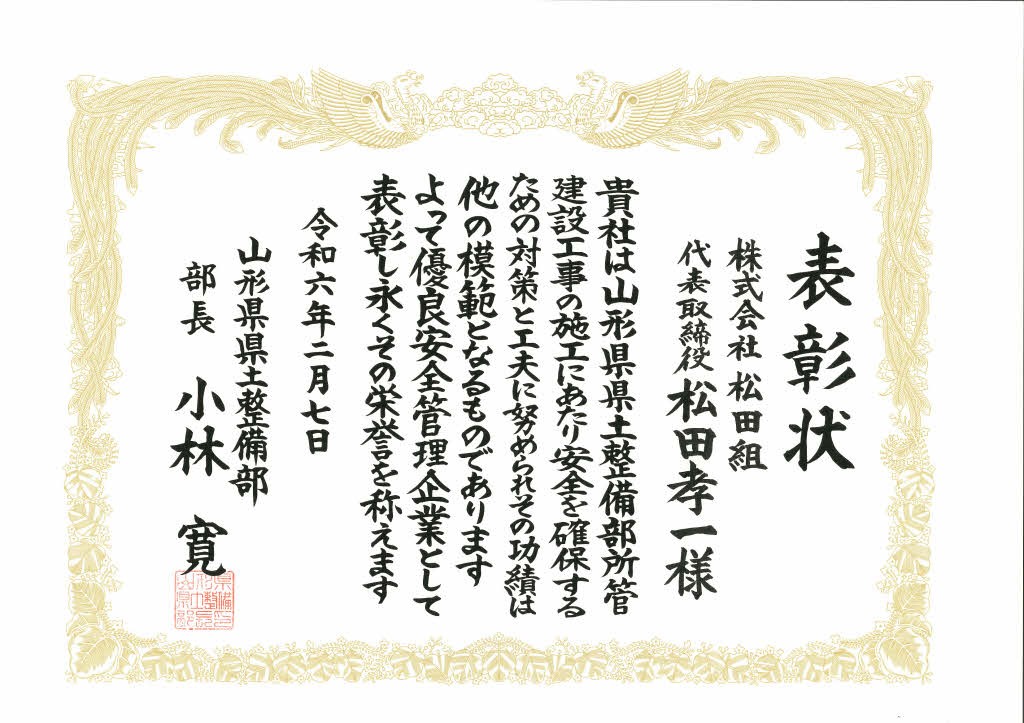 表彰状
株式会社 松田組
代表取締役 松田孝一様
貴社は山形県県土整備部所管
建設工事の施工にあたり安全を確保する
ための対策と工夫に努められその功績は
他の模範となるものであります
よって優良安全管理企業として
表彰し永くその栄誉を称えます
令和六年二月七日
山形県県土整備部
部長 小林 寛